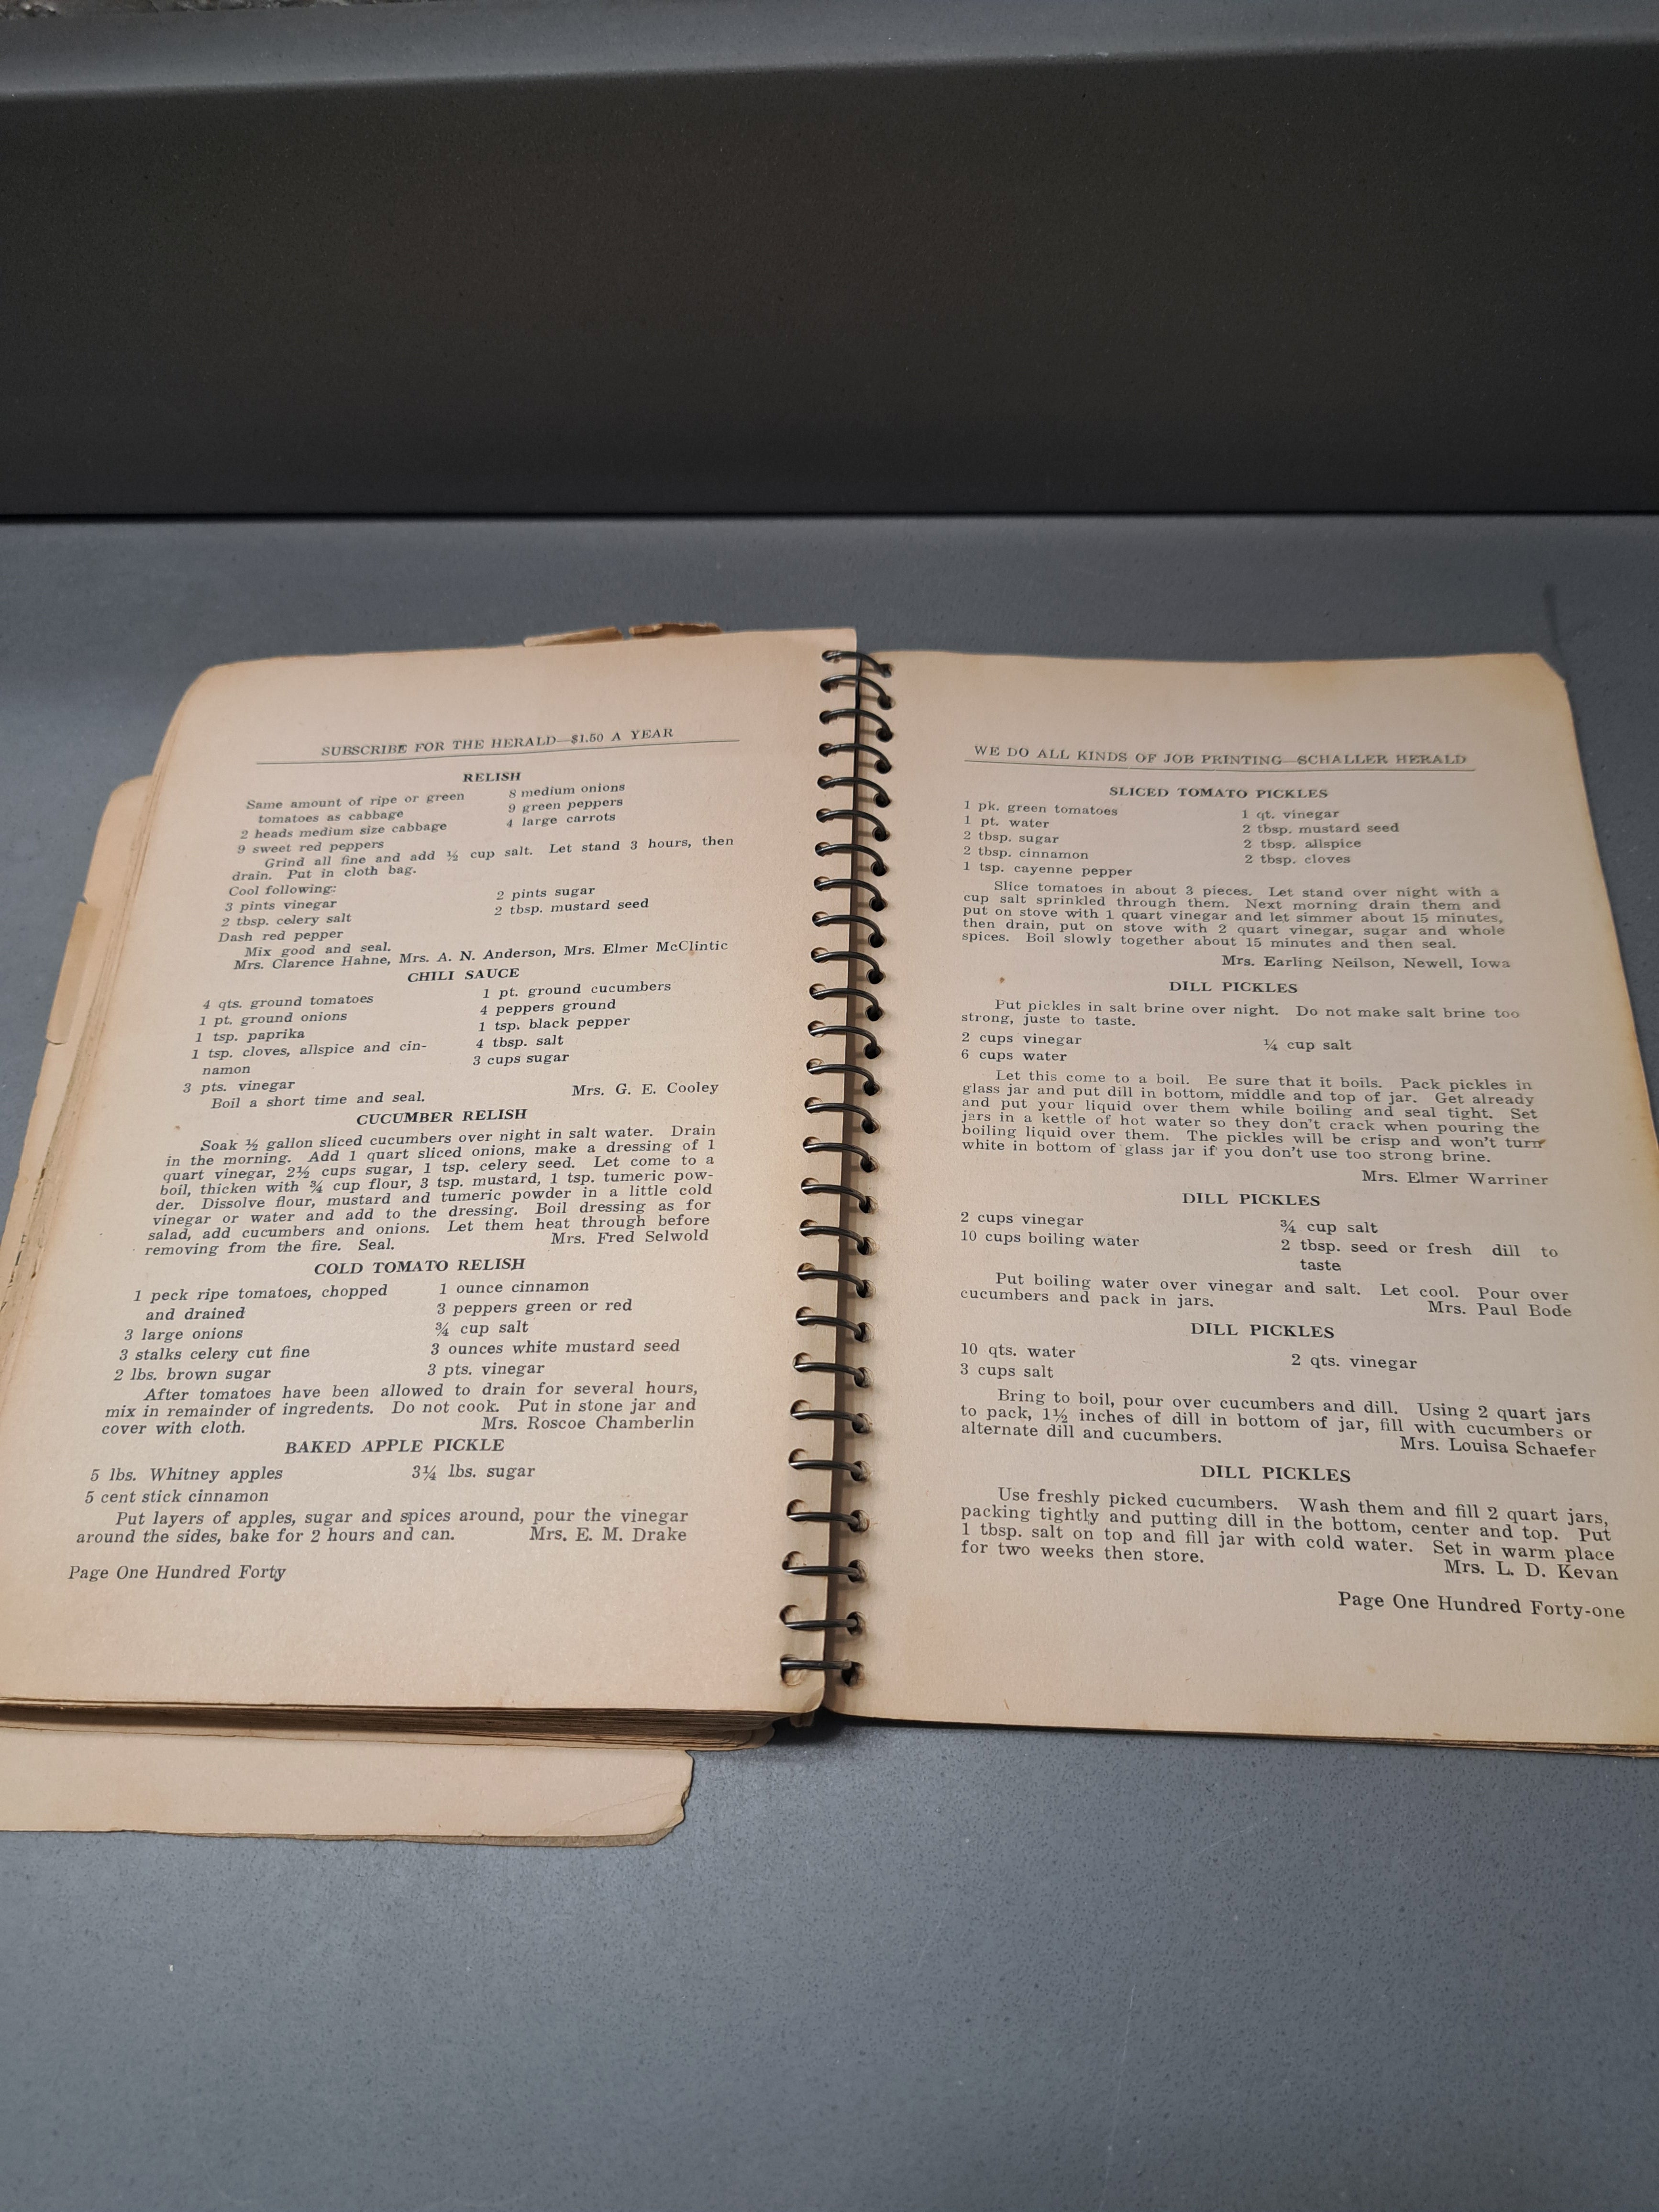 SUBSCRIBE FOR THE HERALD—$1.50 A YEAR
RELISH
Same amount of ripe or green
tomatoes as cabbage
2 heads medium size cabbage
9 sweet red peppers
8 medium onions
9 green peppers
4 large carrots
Grind all fine and add ½ cup salt. Let stand 3 hours, then
drain. Put in cloth bag.
Cool following:
3 pints vinegar
2 tbsp. celery salt
Dash red pepper
2 pints sugar
2 tbsp. mustard seed
Mix good and seal.
Mrs. Clarence Hahne, Mrs. A. N. Anderson, Mrs. Elmer McClintic
CHILI SAUCE
4 qts. ground tomatoes
1 pt. ground onions
1 tsp. paprika
1 tsp. cloves, allspice and cin-
namon
3 pts. vinegar
1 pt. ground cucumbers
4 peppers ground
1 tsp. black pepper
4 tbsp. salt
3 cups sugar
Boil a short time and seal. Mrs. G. E. Cooley
CUCUMBER RELISH
Soak ½ gallon sliced cucumbers over night in salt water. Drain
in the morning. Add 1 quart sliced onions, make a dressing of 1
quart vinegar, 2½ cups sugar, 1 tsp. celery seed. Let come to a
boil, thicken with ¾ cup flour, 3 tsp. mustard, 1 tsp. tumeric pow-
der. Dissolve flour, mustard and tumeric powder in a little cold
vinegar or water and add to the dressing. Boil dressing as for
salad, add cucumbers and onions. Let them heat through before
removing from the fire. Seal. Mrs. Fred Selwold
COLD TOMATO RELISH
1 peck ripe tomatoes, chopped
and drained
3 large onions
3 stalks celery cut fine
2 lbs. brown sugar
1 ounce cinnamon
3 peppers green or red
¾ cup salt
3 ounces white mustard seed
3 pts. vinegar
After tomatoes have been allowed to drain for several hours,
mix in remainder of ingredents. Do not cook. Put in stone jar and
cover with cloth. Mrs. Roscoe Chamberlin
BAKED APPLE PICKLE
5 lbs. Whitney apples
5 cent stick cinnamon
3¼ lbs. sugar
Put layers of apples, sugar and spices around, pour the vinegar
around the sides, bake for 2 hours and can. Mrs. E. M. Drake
Page One Hundred Forty
WE DO ALL KINDS OF JOB PRINTING—SCHALLER HERALD
SLICED TOMATO PICKLES
1 pk. green tomatoes
1 pt. water
2 tbsp. sugar
2 tbsp. cinnamon
1 tsp. cayenne pepper
1 qt. vinegar
2 tbsp. mustard seed
2 tbsp. allspice
2 tbsp. cloves
Slice tomatoes in about 3 pieces. Let stand over night with a
cup salt sprinkled through them. Next morning drain them and
put on stove with 1 quart vinegar and let simmer about 15 minutes,
then drain, put on stove with 2 quart vinegar, sugar and whole
spices. Boil slowly together about 15 minutes and then seal.
Mrs. Earling Neilson, Newell, Iowa
DILL PICKLES
Put pickles in salt brine over night. Do not make salt brine too
strong, juste to taste.
2 cups vinegar
6 cups water
¼ cup salt
Let this come to a boil. Be sure that it boils. Pack pickles in
glass jar and put dill in bottom, middle and top of jar. Get already
and put your liquid over them while boiling and seal tight. Set
jars in a kettle of hot water so they don't crack when pouring the
boiling liquid over them. The pickles will be crisp and won't turn
white in bottom of glass jar if you don't use too strong brine.
Mrs. Elmer Warriner
DILL PICKLES
2 cups vinegar
10 cups boiling water
¾ cup salt
2 tbsp. seed or fresh dill to
taste
Put boiling water over vinegar and salt. Let cool. Pour over
cucumbers and pack in jars. Mrs. Paul Bode
DILL PICKLES
10 qts. water
3 cups salt
2 qts. vinegar
Bring to boil, pour over cucumbers and dill. Using 2 quart jars
to pack, 1½ inches of dill in bottom of jar, fill with cucumbers or
alternate dill and cucumbers. Mrs. Louisa Schaefer
DILL PICKLES
Use freshly picked cucumbers. Wash them and fill 2 quart jars,
packing tightly and putting dill in the bottom, center and top. Put
1 tbsp. salt on top and fill jar with cold water. Set in warm place
for two weeks then store. Mrs. L. D. Kevan
Page One Hundred Forty-one